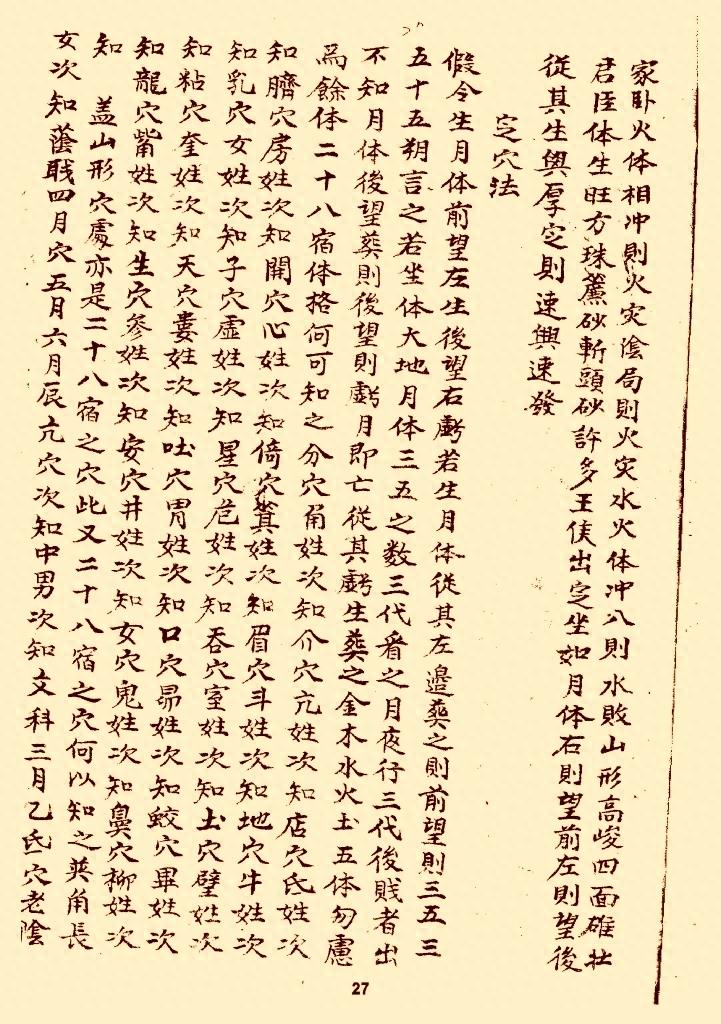 家卧火体相冲則火灾陰局則火灾水火体冲八則水敗山形高峻四面雄壮
君臣体生旺方珠簾砂斬頭砂許多王侯出定坐如月体右則望前左則望後
從其生與厚定則速興速發
定穴法
假令生月体前望左生後望右虧若生月体從其左邉葬之則前望則三五三
五十五朔言之若坐体大地月体三五之数三代看之月夜行三代後賎者出
不知月体後望葬則後望則虧月即亡從其虧生葬之金木水火土五体勿慮
爲餘体二十八宿体格何可知之分穴角姓次知介穴亢姓次知店穴氐姓次
知臍穴房姓次知開穴心姓次知倚穴箕姓次知眉穴斗姓次知地穴牛姓次
知乳穴女姓次知子穴虚姓次知星穴危姓次知吞穴室姓次知土穴壁姓次
知粘穴奎姓次知天穴婁姓次知吐穴胃姓次知口穴昴姓次知蛟穴畢姓次
知龍穴觜姓次知生穴参姓次知安穴井姓次知女穴鬼姓次知鼻穴柳姓次
知 盖山形穴處亦是二十八宿之穴此又二十八宿之穴何以知之葬角長
女次知蔭戝四月穴五月六月辰亢穴次知中男次知文科三月乙氐穴老陰
27